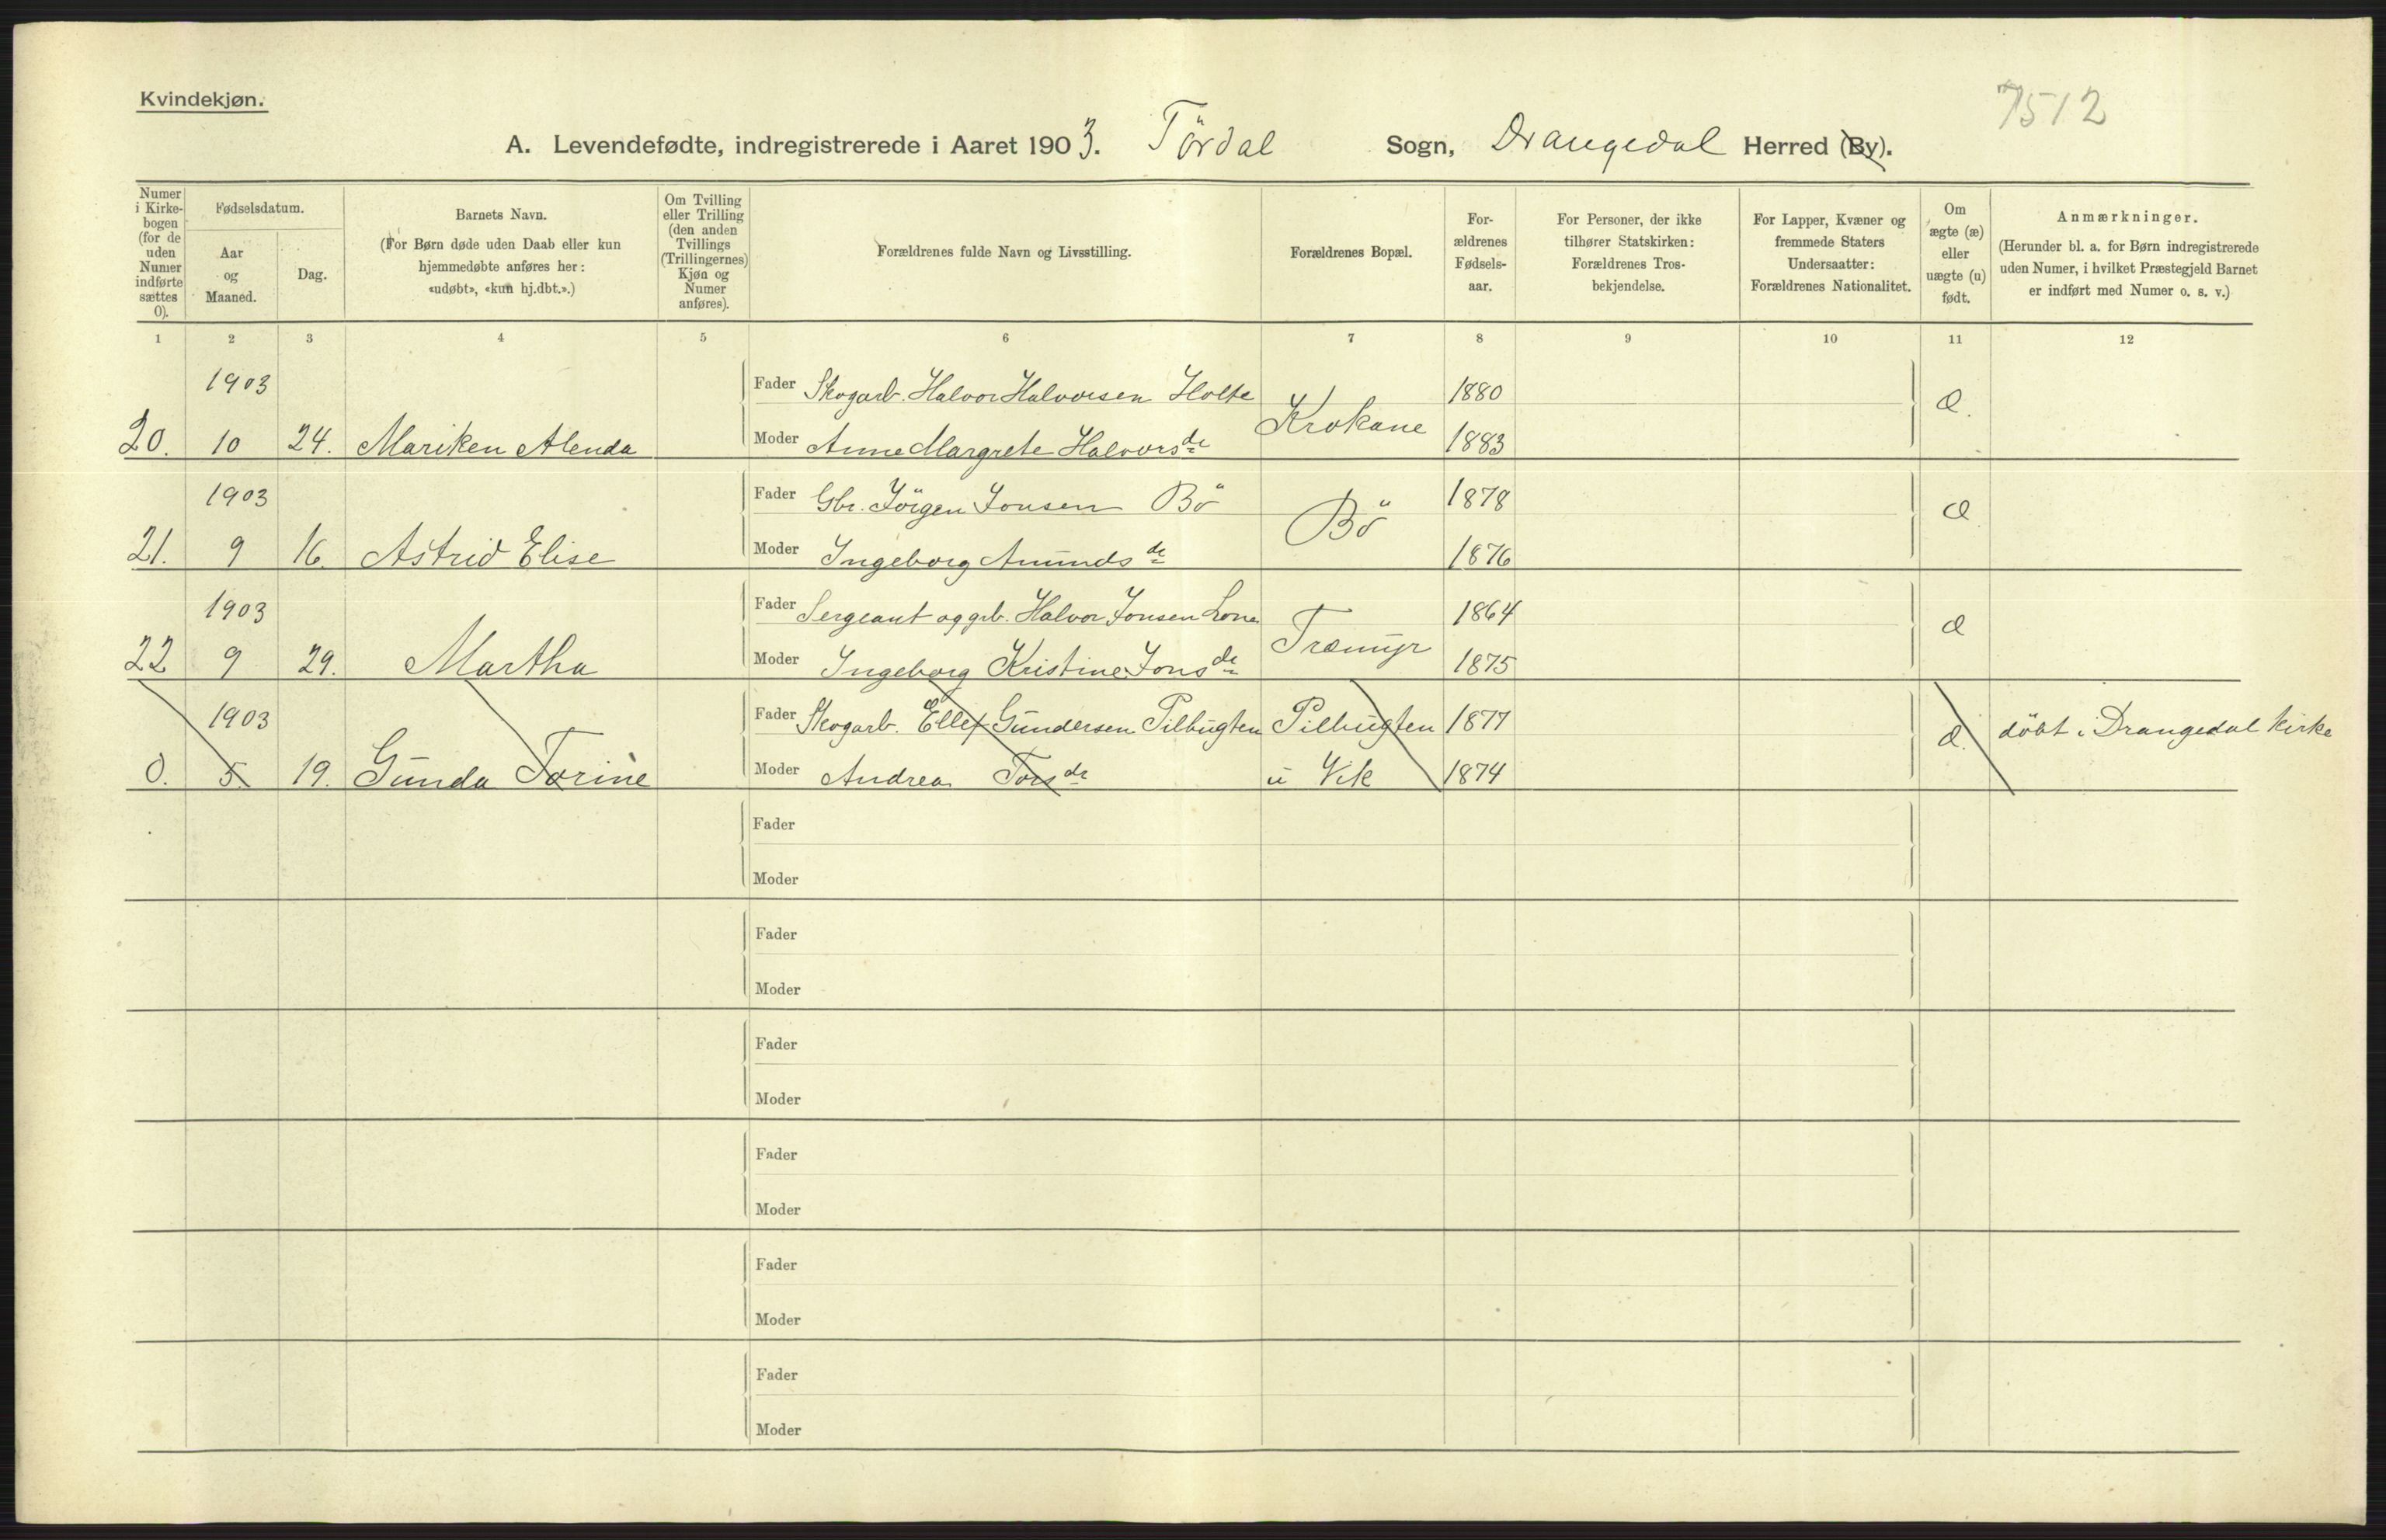 Kvindekjøn.
7512
A. Levendefødte, indregistrerede i Aaret 1903. Tördal Sogn, Drangedal Herred (By).
Numer i Kirkebogen (for de uden Numer indførte sættes 0).
Fødselsdatum.
Aar og Maaned.
Dag.
Barnets Navn.
(For Børn døde uden Daab eller kun
hjemmedøbte anføres her:
«udøbt», «kun hj.dbt.».)
Om Tvilling
eller Trilling
(den anden
Tvillings
(Trillingernes)
Kjøn og
Numer
anføres).
Forældrenes fulde Navn og Livsstilling.
Forældrenes Bopæl.
For-
ældrenes
Fødsels-
aar.
For Personer, der ikke
tilhører Statskirken:
Forældrenes Tros-
bekjendelse.
For Lapper, Kvæner og
fremmede Staters
Undersaatter:
Forældrenes Nationalitet.
Om
ægte (æ)
eller
uægte (u)
født.
Anmærkninger.
(Herunder bl. a. for Børn indregistrerede
uden Numer, i hvilket Præstegjeld Barnet
er indført med Numer o. s. v.)
1 2 3 4 5 6 7 8 9 10 11 12
1903 Fader Skogarb. Halvor Halvorsen Holte 1880
Krokane æ.
20. 10 24. Mariken Alenda Moder Anne Margrete Halvorsdr 1883
1903 Fader Gbr. Jörgen Jonsen Bö 1878
Bö æ
21. 9 16. Astrid Elise Moder Ingeborg Amundsdr 1876
1903 Fader Sergeant og grb. Halvor Jonsen 1864
Træmyr æ
22 9 29. Martha Moder Ingeborg Kristine Jonsdr 1875
1903 Fader Skogarb. Ellef Gundersen Pilbugten Pilbugten 1877
æ. döbt i Drangedal Kirke
0. 5. 19. Gunda Torine Moder Andrea Torsdr u Vik 1874
Fader
Moder
Fader
Moder
Fader
Moder
Fader
Moder
Fader
Moder
Fader
Moder